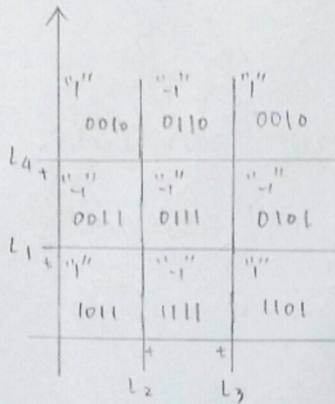 "1" "-1" "1"
0010 0110 0010
L4 +
"-1" "-1" "-1"
0011 0111 0101
L1 +
"1" "-1" "1"
1011 1111 1101
+ +
L2 L3